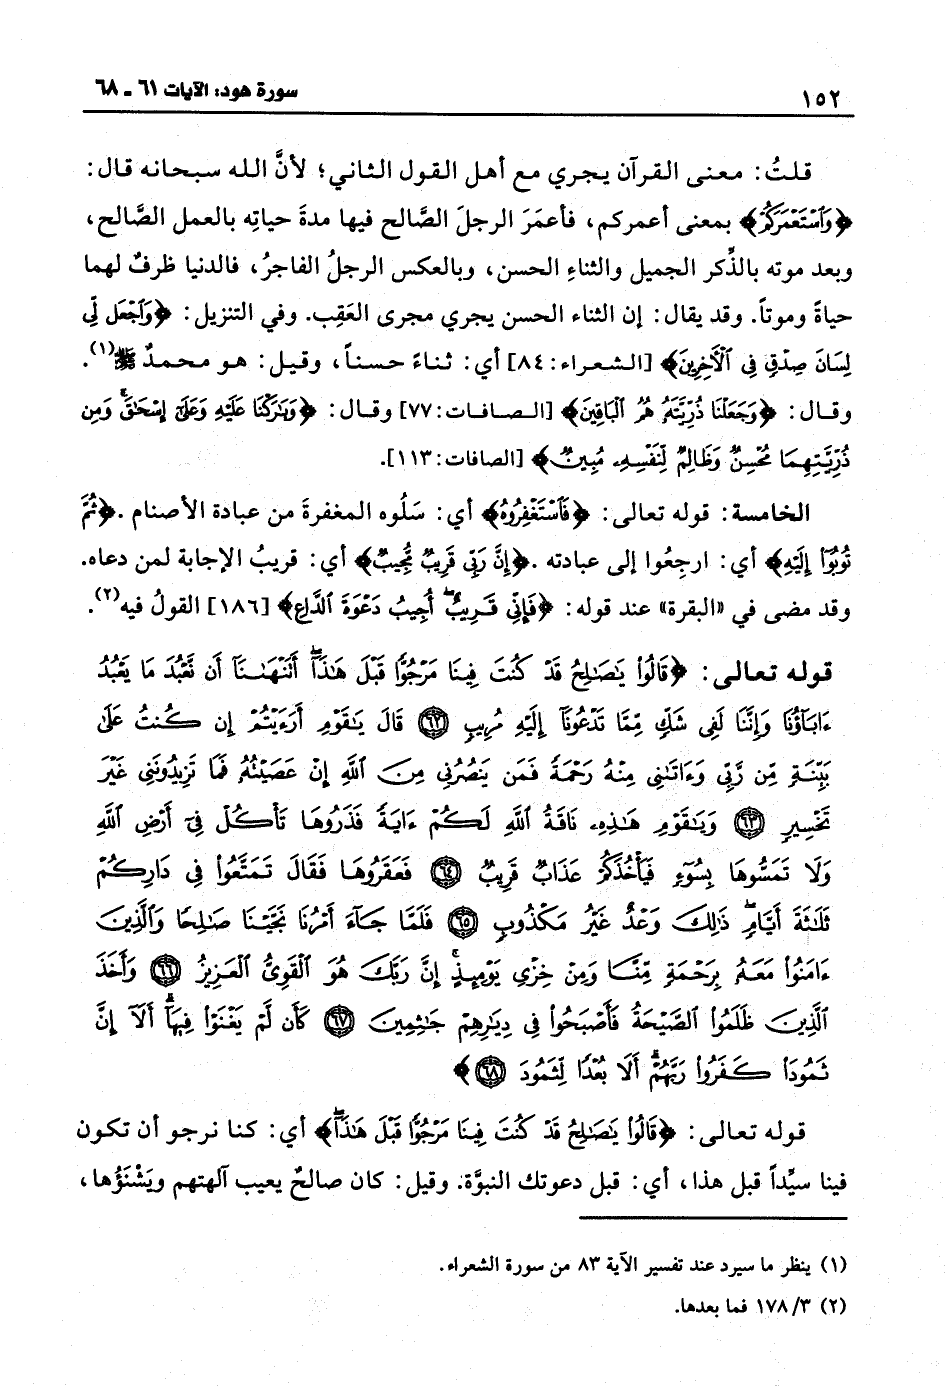 ١٥٢ سورة هود: الآيات ٦١ ـ ٦٨
قلتُ: معنى القرآن يجري مع أهل القول الثاني؛ لأنَّ الله سبحانه قال:
﴿وَٱسۡتَعۡمَرَكُمۡ﴾ بمعنى أعمركم، فأعمَرَ الرجلَ الصَّالح فيها مدةَ حياتِه بالعمل الصَّالح،
وبعد موته بالذِّكر الجميل والثناءِ الحسن، وبالعكس الرجلُ الفاجرُ، فالدنيا ظرفٌ لهما
حياةً وموتاً. وقد يقال: إن الثناء الحسن يجري مجرى العَقِب. وفي التنزيل: ﴿وَٱجۡعَل لِّي
لِسَانَ صِدۡقٖ فِي ٱلۡأٓخِرِينَ﴾ [الشعراء: ٨٤] أي: ثناءً حسناً، وقيل: هو محمدٌ ﷺ(١).
وقال: ﴿وَجَعَلۡنَا ذُرِّيَّتَهُۥ هُمُ ٱلۡبَاقِينَ﴾ [الصافات: ٧٧] وقال: ﴿وَبَٰرَكۡنَا عَلَيۡهِ وَعَلَىٰٓ إِسۡحَٰقَۚ وَمِن
ذُرِّيَّتِهِمَا مُحۡسِنٞ وَظَالِمٞ لِّنَفۡسِهِۦ مُبِينٞ﴾ [الصافات: ١١٣].
الخامسة: قوله تعالى: ﴿فَٱسۡتَغۡفِرُوهُ﴾ أي: سَلُوه المغفرةَ من عبادة الأصنام. ﴿ثُمَّ
تُوبُوٓاْ إِلَيۡهِ﴾ أي: ارجِعُوا إلى عبادته. ﴿إِنَّ رَبِّي قَرِيبٞ مُّجِيبٞ﴾ أي: قريبُ الإجابة لمن دعاه.
وقد مضى في «البقرة» عند قوله: ﴿فَإِنِّي قَرِيبٌۖ أُجِيبُ دَعۡوَةَ ٱلدَّاعِ﴾ [١٨٦] القولُ فيه(٢).
قوله تعالى: ﴿قَالُواْ يَٰصَٰلِحُ قَدۡ كُنتَ فِينَا مَرۡجُوّٗا قَبۡلَ هَٰذَآۖ أَتَنۡهَىٰنَآ أَن نَّعۡبُدَ مَا يَعۡبُدُ
ءَابَآؤُنَا وَإِنَّنَا لَفِي شَكّٖ مِّمَّا تَدۡعُونَآ إِلَيۡهِ مُرِيبٖ ٦٢ قَالَ يَٰقَوۡمِ أَرَءَيۡتُمۡ إِن كُنتُ عَلَىٰ
بَيِّنَةٖ مِّن رَّبِّي وَءَاتَىٰنِي مِنۡهُ رَحۡمَةٗ فَمَن يَنصُرُنِي مِنَ ٱللَّهِ إِنۡ عَصَيۡتُهُۥ فَمَا تَزِيدُونَنِي غَيۡرَ
تَخۡسِيرٖ ٦٣ وَيَٰقَوۡمِ هَٰذِهِۦ نَاقَةُ ٱللَّهِ لَكُمۡ ءَايَةٗ فَذَرُوهَا تَأۡكُلۡ فِيٓ أَرۡضِ ٱللَّهِ
وَلَا تَمَسُّوهَا بِسُوٓءٖ فَيَأۡخُذَكُمۡ عَذَابٞ قَرِيبٞ ٦٤ فَعَقَرُوهَا فَقَالَ تَمَتَّعُواْ فِي دَارِكُمۡ
ثَلَٰثَةَ أَيَّامٖۖ ذَٰلِكَ وَعۡدٌ غَيۡرُ مَكۡذُوبٖ ٦٥ فَلَمَّا جَآءَ أَمۡرُنَا نَجَّيۡنَا صَٰلِحٗا وَٱلَّذِينَ
ءَامَنُواْ مَعَهُۥ بِرَحۡمَةٖ مِّنَّا وَمِنۡ خِزۡيِ يَوۡمِئِذٍۚ إِنَّ رَبَّكَ هُوَ ٱلۡقَوِيُّ ٱلۡعَزِيزُ ٦٦ وَأَخَذَ
ٱلَّذِينَ ظَلَمُواْ ٱلصَّيۡحَةُ فَأَصۡبَحُواْ فِي دِيَٰرِهِمۡ جَٰثِمِينَ ٦٧ كَأَن لَّمۡ يَغۡنَوۡاْ فِيهَآۗ أَلَآ إِنَّ
ثَمُودَاْ كَفَرُواْ رَبَّهُمۡۗ أَلَا بُعۡدٗا لِّثَمُودَ ٦٨﴾
قوله تعالى: ﴿قَالُواْ يَٰصَٰلِحُ قَدۡ كُنتَ فِينَا مَرۡجُوّٗا قَبۡلَ هَٰذَآۖ﴾ أي: كنا نرجو أن تكون
فينا سيِّداً قبل هذا، أي: قبل دعوتك النبوَّة. وقيل: كان صالحٌ يعيب آلهتهم ويَشْنَؤُها،
(١) ينظر ما سيرد عند تفسير الآية ٨٣ من سورة الشعراء.
(٢) ٣/ ١٧٨ فما بعدها.